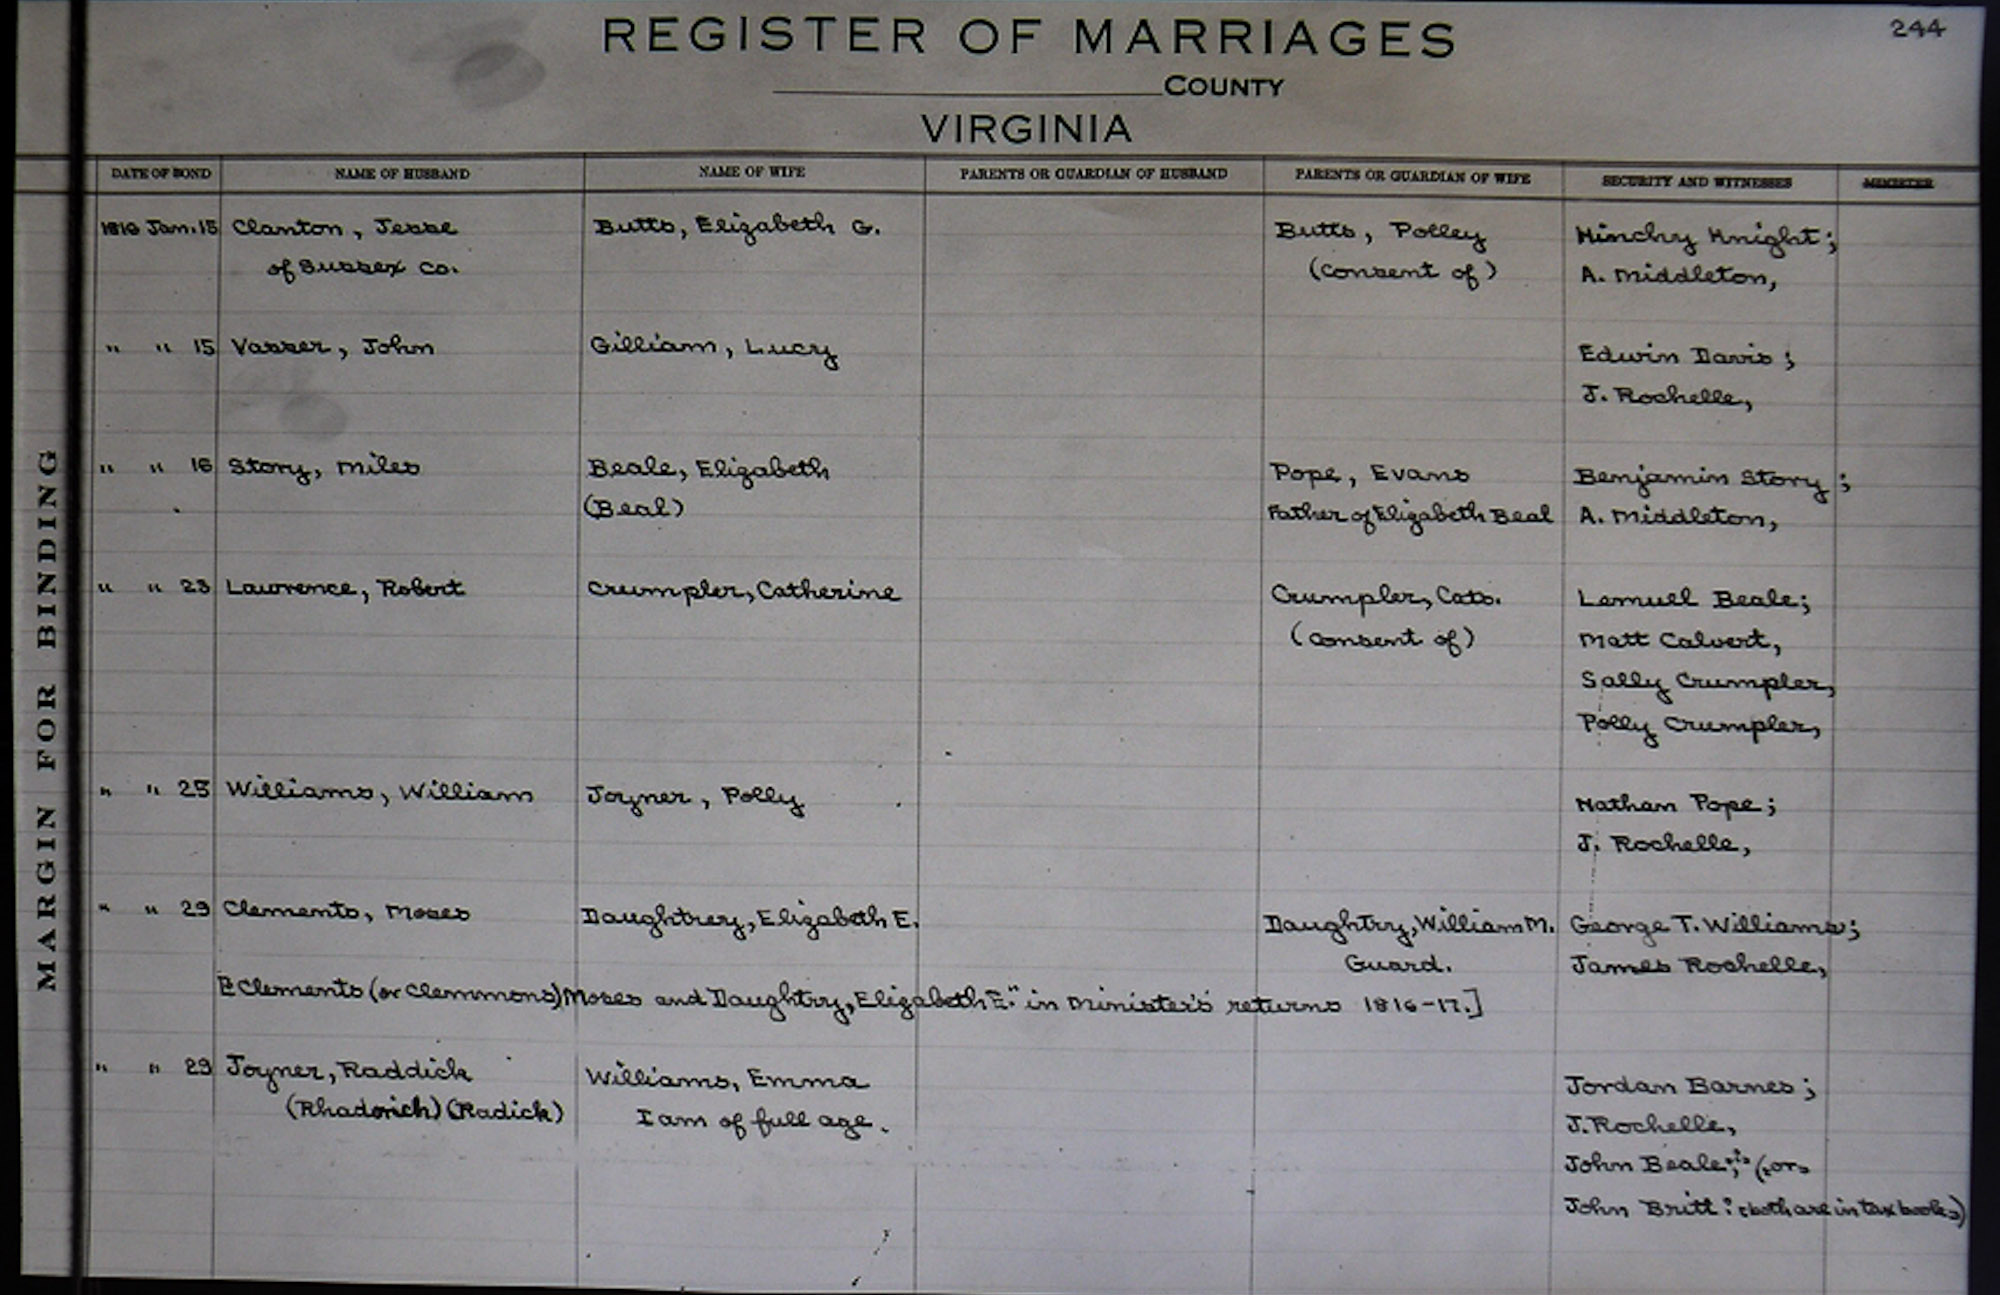 244
REGISTER OF MARRIAGES
COUNTY
VIRGINIA
DATE OF BOND NAME OF HUSBAND NAME OF WIFE PARENTS OR GUARDIAN OF HUSBAND PARENTS OR GUARDIAN OF WIFE SECURITY AND WITNESSES MINISTER
1816 Jan. 15 Clanton, Jesse Butts, Elizabeth G. Butts, Polley Hinchy Knight;
of Sussex Co. (Consent of) A. Middleton,
" " 15 Vasser, John Gilliam, Lucy Edwin Davis;
J. Rochelle,
" " 16 Story, Miles Beale, Elizabeth Pope, Evans Benjamin Story;
(Beal) Father of Elizabeth Beal A. Middleton,
" " 23 Lawrence, Robert Crumpler, Catherine Crumpler, Lemuel Beale;
(Consent of) Matt Calvert,
Sally Crumpler,
Polly Crumpler,
" " 25 Williams, William Joyner, Polly Nathan Pope;
J. Rochelle,
" " 29 Clements, Moses Daughtrey, Elizabeth E. Daughtry, William M. George T. Williams;
Guard. James Rochelle,
["Clements (or Clemmons) Moses and Daughtry, Elizabeth E." in Minister's returns 1816-17.]
" " 29 Joyner, Raddick Williams, Emma Jordan Barnes;
(Radick) I am of full age. J. Rochelle,
John Beale (or
John Britt: (both are in tax books)
MARGIN FOR BINDING